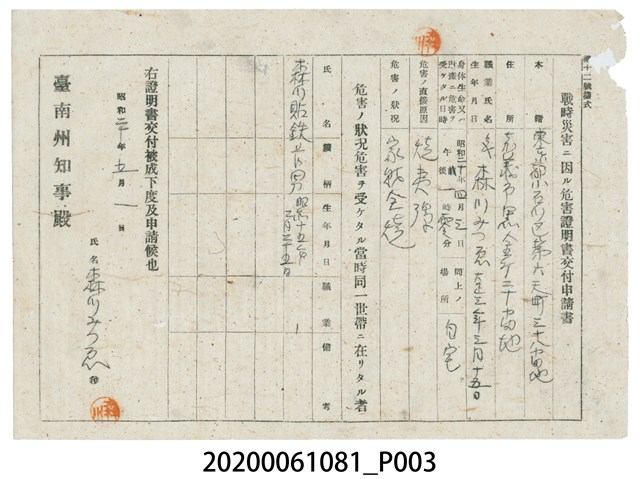 第十二號樣式
戰時災害ニ因ル危害證明書交付申請書
本籍 東京都小石川区第六天町三十八番地
住所 嘉義市黒金町二十番地
職業氏名 森川みつゑ 大正三年三月十五日
生年月日
身体生命又ハ財產ニ危害ヲ受ケタル日時 昭和二十年四月三日 午後 時零分 同上ノ場所 自宅
危害ノ直接原因 焼夷弾
危害ノ狀況 家財全焼
危害ノ狀況危害ヲ受ケタル當時同一世帶ニ在リタル者
氏名 續柄 生年月日 職業 備考
森川 鉄 長男 昭和十五年三月三十五日
右證明書交付被成下度及申請候也
昭和二十年五月 一日
氏名 森川みつゑ
臺南州知事殿
20200061081_P003